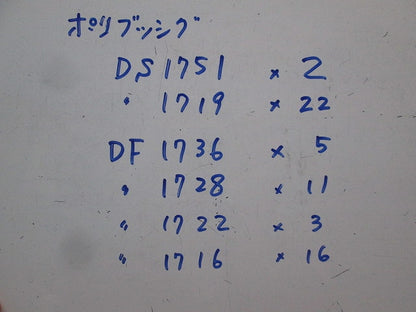 ポリブッシング
DS 1751 × 2
〃 1719 × 22
DF 1736 × 5
〃 1728 × 11
〃 1722 × 3
〃 1716 × 16